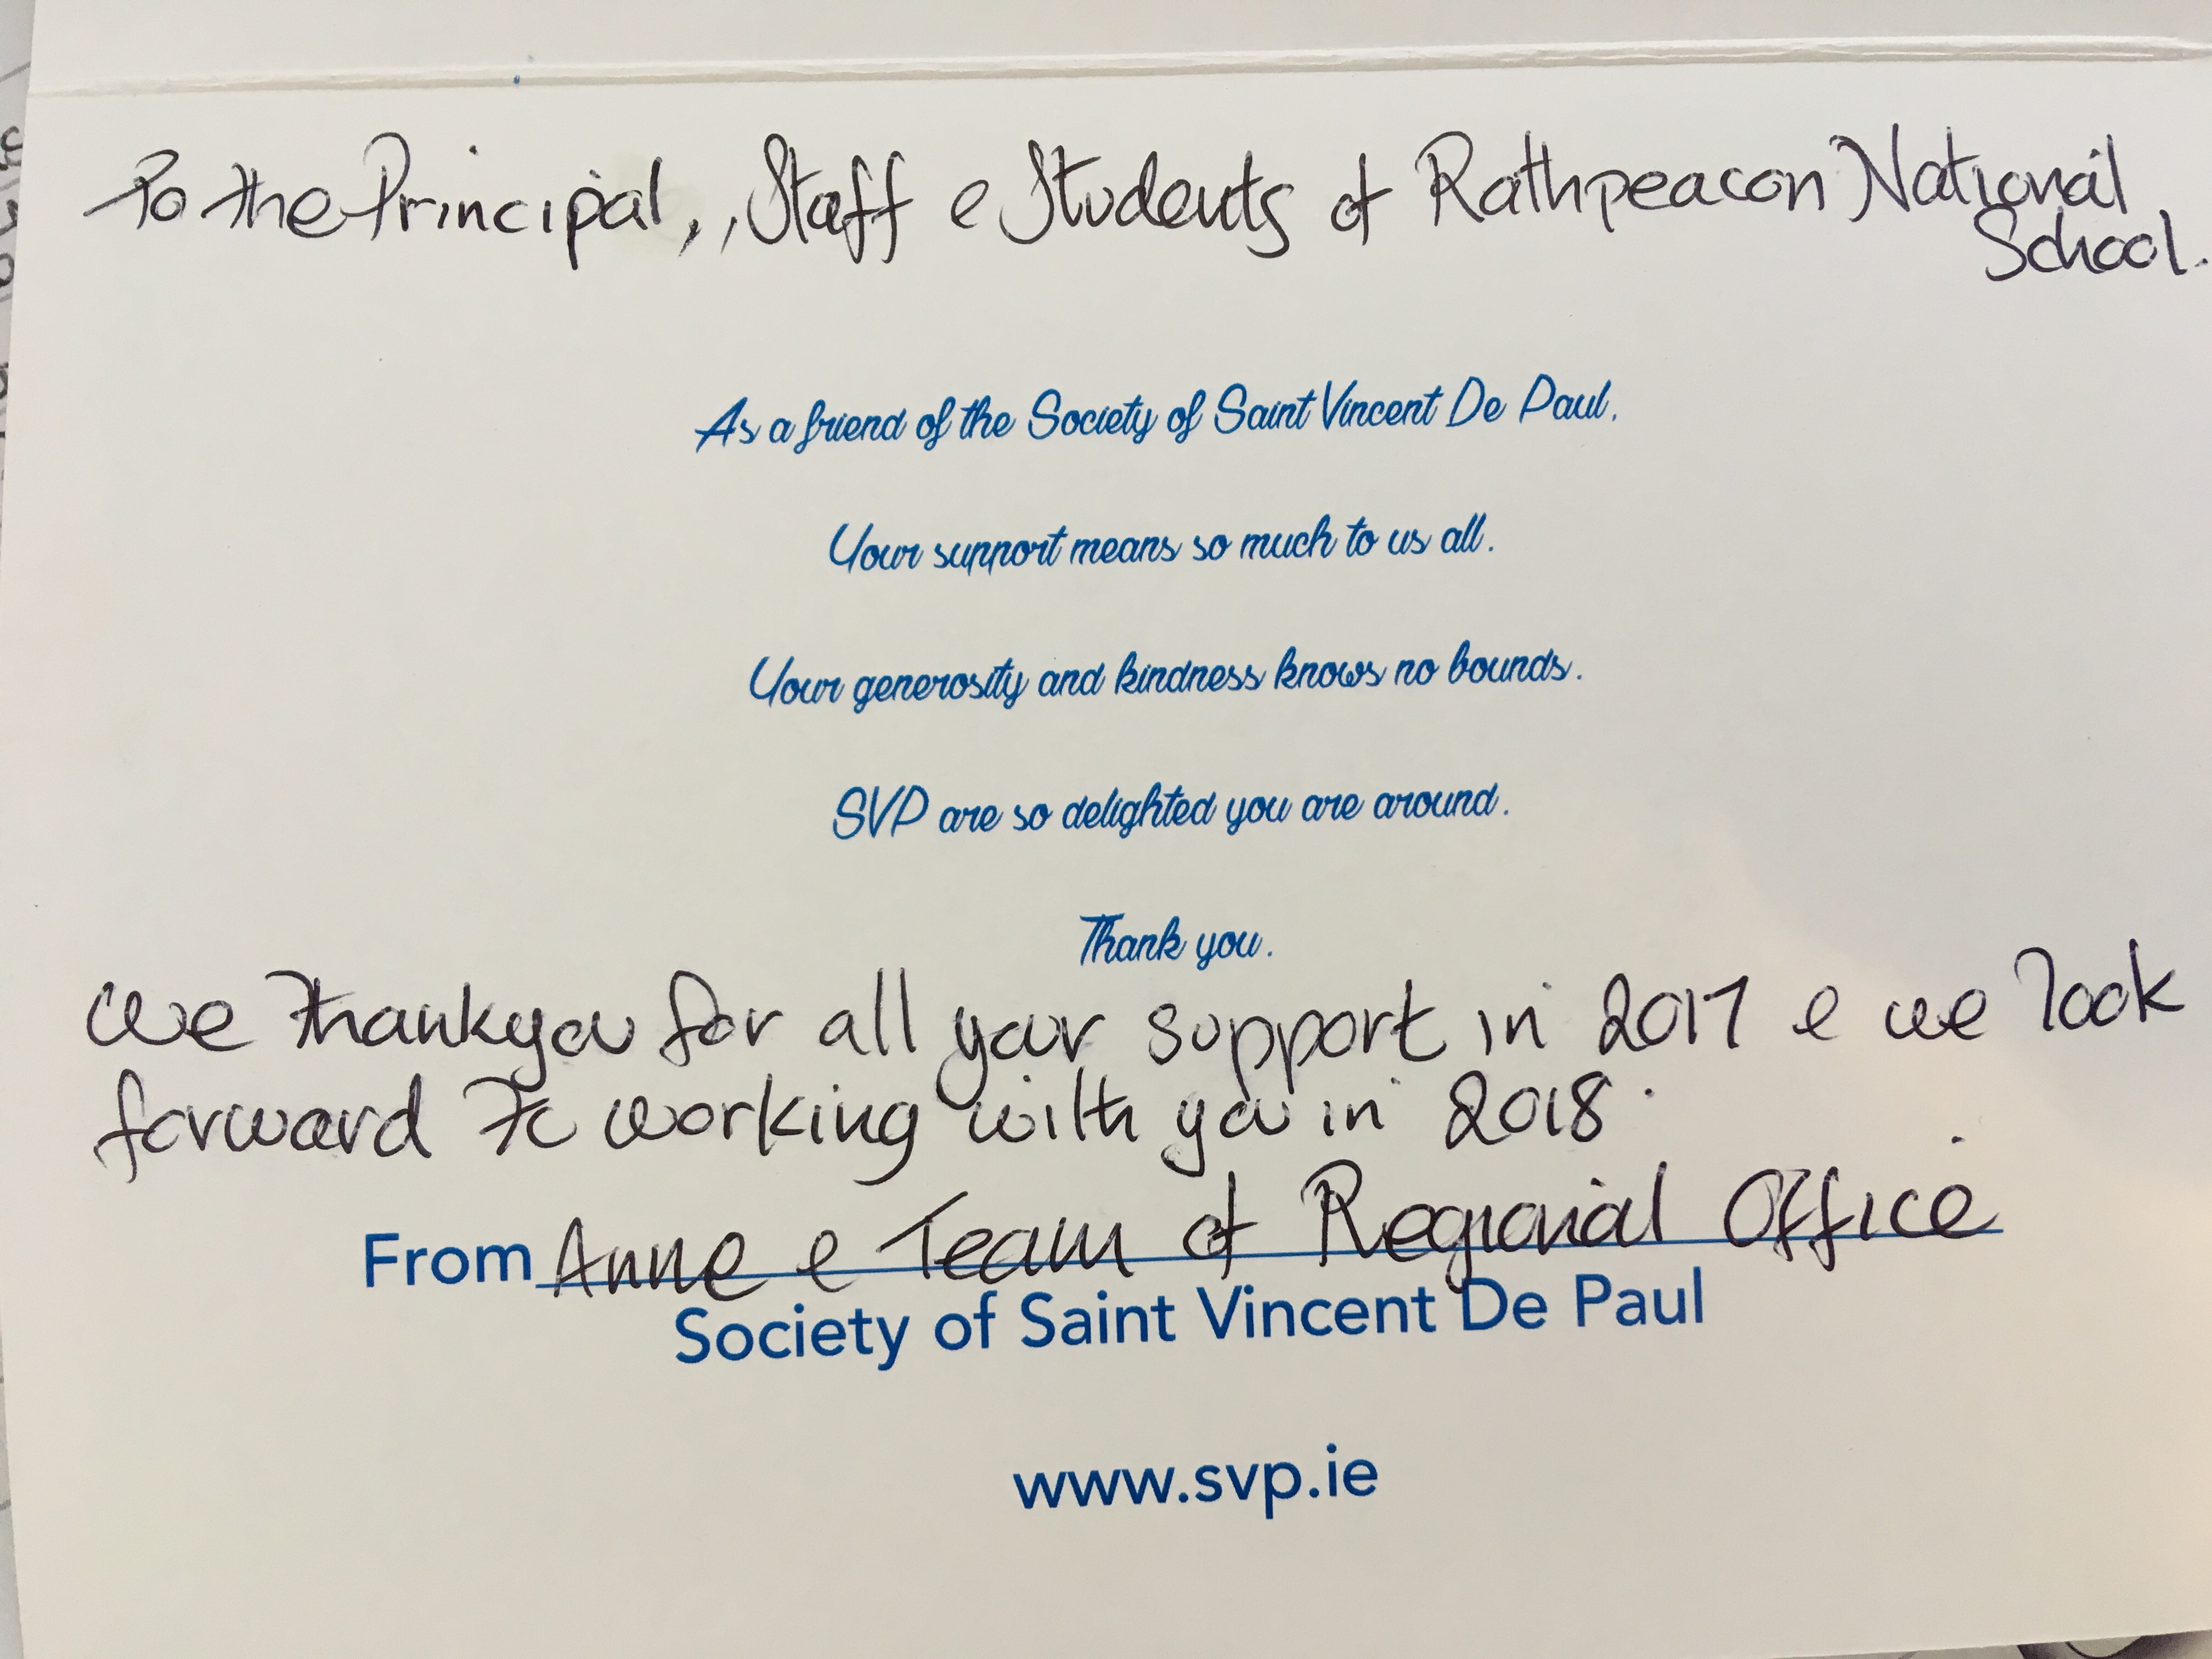 To the Principal, , Staff e Students of Rathpeacon National
School.
As a friend of the Society of Saint Vincent De Paul,
Your support means so much to us all.
Your generosity and kindness knows no bounds.
SVP are so delighted you are around.
Thank you.
We thankyou for all your support in 2017 e we look
forward to working with you in 2018.
From Anne e Team of Regional Office
Society of Saint Vincent De Paul
www.svp.ie